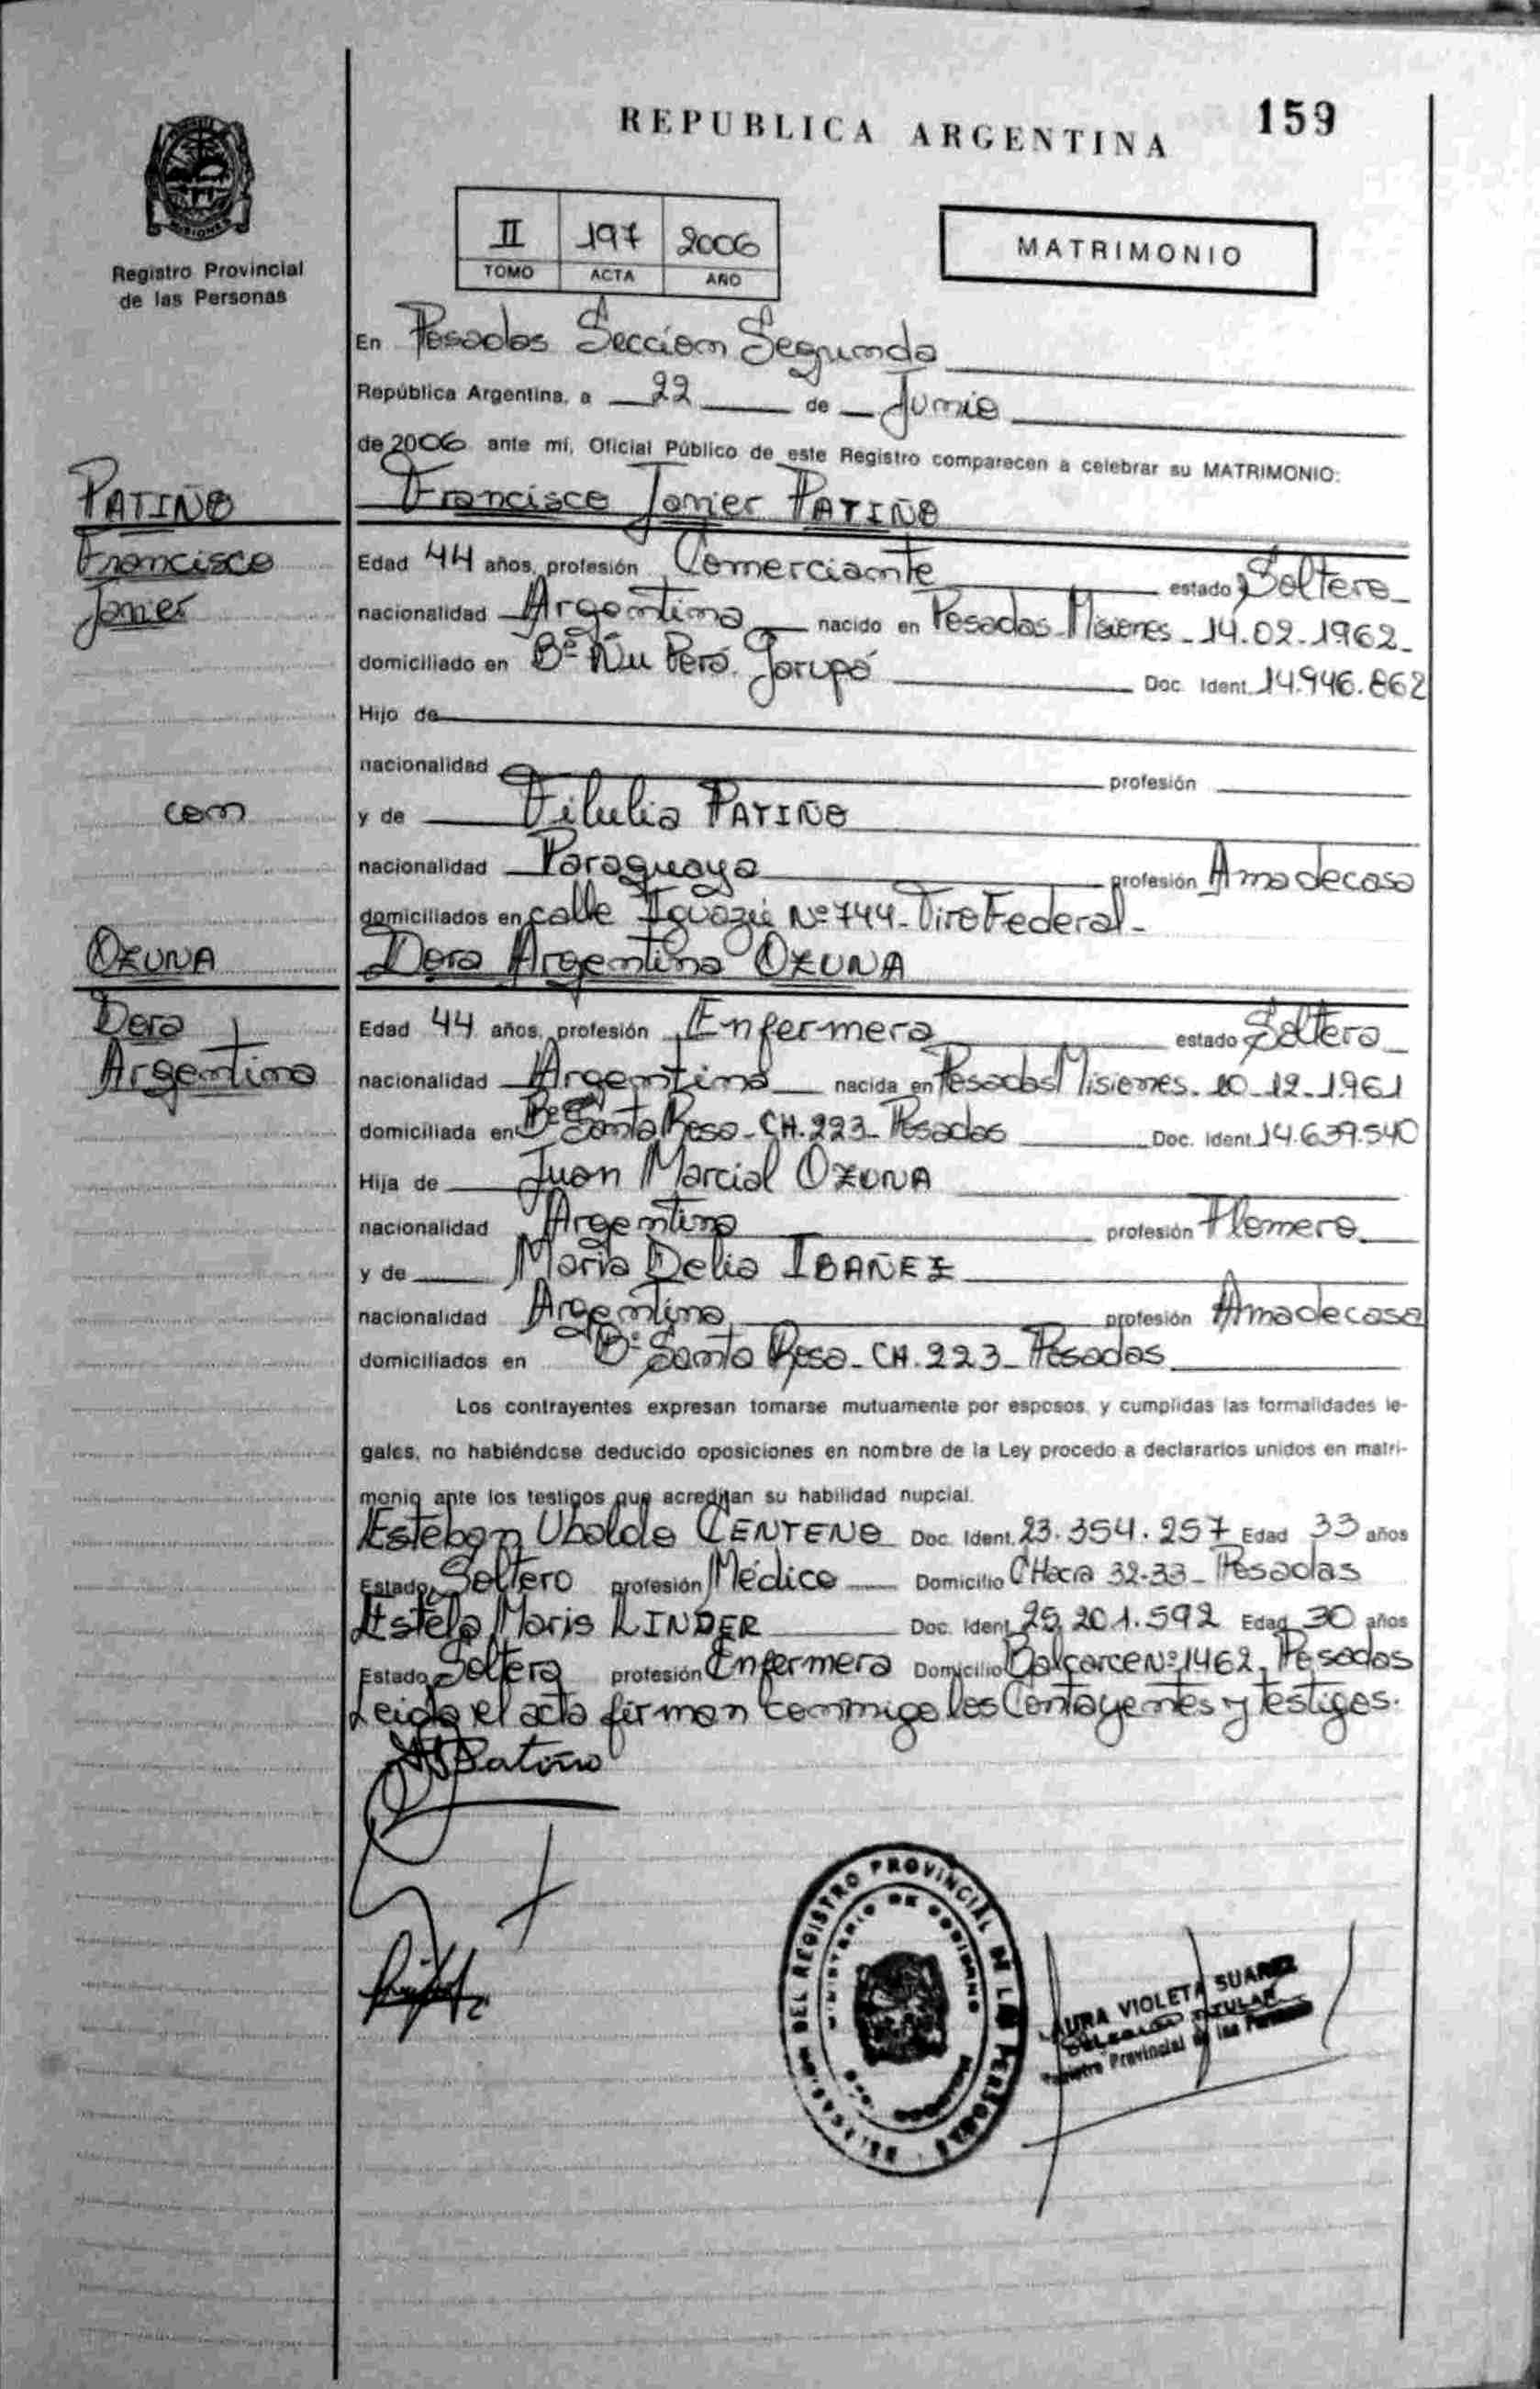 REPUBLICA ARGENTINA
159
MISIONES
Registro Provincial
de las Personas
II 197 2006
TOMO ACTA AÑO
MATRIMONIO
En Posadas Sección Segunda
República Argentina, a 22 de Junio
de 2006 ante mí, Oficial Público de este Registro comparecen a celebrar su MATRIMONIO:
PATIÑO
Francisco Javier PATIÑO
Francisco
Edad 44 años, profesión Comerciante estado Soltero
Javier
nacionalidad Argentina nacido en Posadas Misiones - 14.02.1962
domiciliado en Bº Ñu Porá. Garupá Doc. Ident. 14.946.862
Hijo de
nacionalidad profesión
con
y de PATIÑO
nacionalidad Paraguaya profesión Ama de casa
domiciliados en calle Iguazú Nº 744 - Tiro Federal -
OZUNA
Dora Argentina OZUNA
Dora
Edad 44 años, profesión Enfermera estado Soltera
Argentina
nacionalidad Argentina nacida en Posadas Misiones. 10-12-1961
domiciliada en Bº Santa Rosa - CH. 223 - Posadas Doc. Ident. 14.639.540
Hija de Juan Marcial OZUNA
nacionalidad Argentina profesión Plomero
y de María Delia IBAÑEZ
nacionalidad Argentina profesión Ama de casa
domiciliados en Bº Santa Rosa - CH. 223 - Posadas
Los contrayentes expresan tomarse mutuamente por esposos, y cumplidas las formalidades le-
gales, no habiéndose deducido oposiciones en nombre de la Ley procedo a declararlos unidos en matri-
monio ante los testigos que acreditan su habilidad nupcial.
Esteban Ubaldo CENTENO Doc. Ident. 23.354.257 Edad 33 años
Estado Soltero profesión Médico Domicilio CHacra 32-33 - Posadas
Estela Maris LINDER Doc. Ident. 25.201.592 Edad 30 años
Estado Soltera profesión Enfermera Domicilio Balcarce Nº 1462 - Posadas
Leida el acta firman conmigo los Contayentes y Testigos.
Patiño
DEL REGISTRO PROVINCIAL DE LAS PERSONAS
MINISTERIO DE GOBIERNO
LAURA VIOLETA SUAREZ
TITULAR
Registro Provincial de las Personas